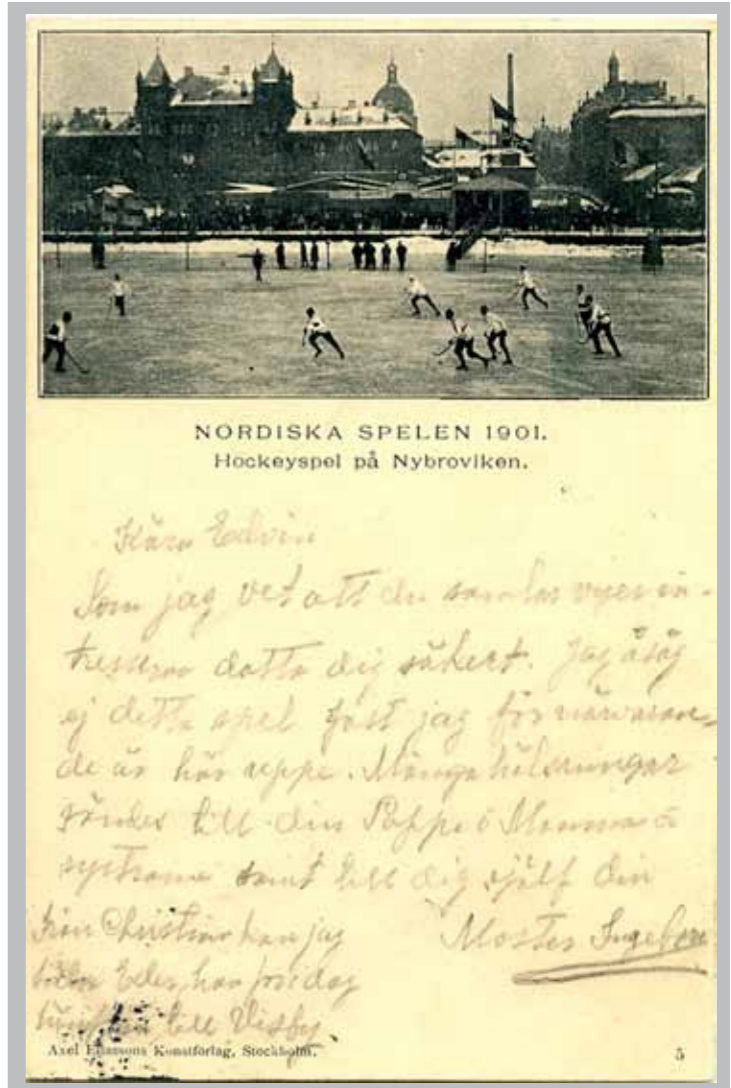 NORDISKA SPELEN 1901.
Hockeyspel på Nybroviken.
Kära Edvin
Som jag vet att du samlar vyer in-
tresserar detta dig säkert. Jag åsåg
ej detta spel fast jag för närvaran-
de är här uppe. Många hälsningar
sändes till din Pappa o Mamma o
systrarna samt till dig själf din
Moster Ingeborg
från Christina kan jag
hälsa Eder, hon for i dag
till Visby
Axel Eliassons Konstförlag, Stockholm.
5